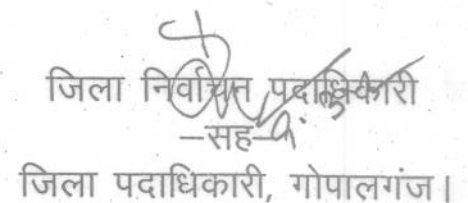 जिला निर्वाचन पदाधिकारी
–सह–
जिला पदाधिकारी, गोपालगंज।